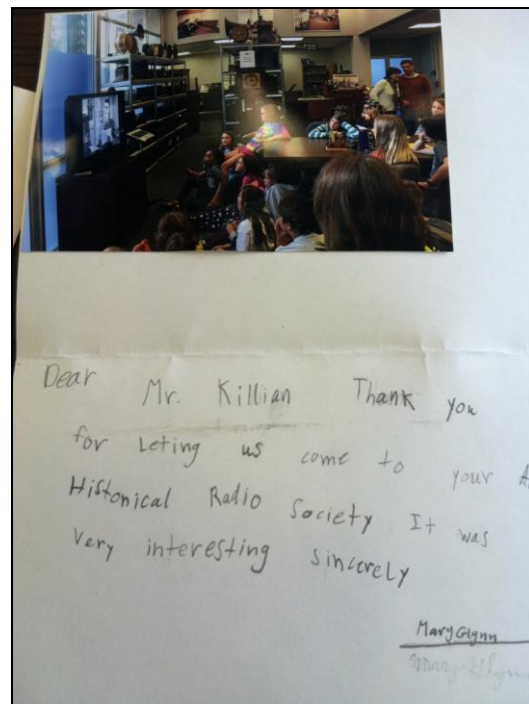 Dear Mr. Killian Thank you
for Leting us come to your
Historical Radio Society It was
Very interesting sincerely
Mary Glynn
Mary Glynn